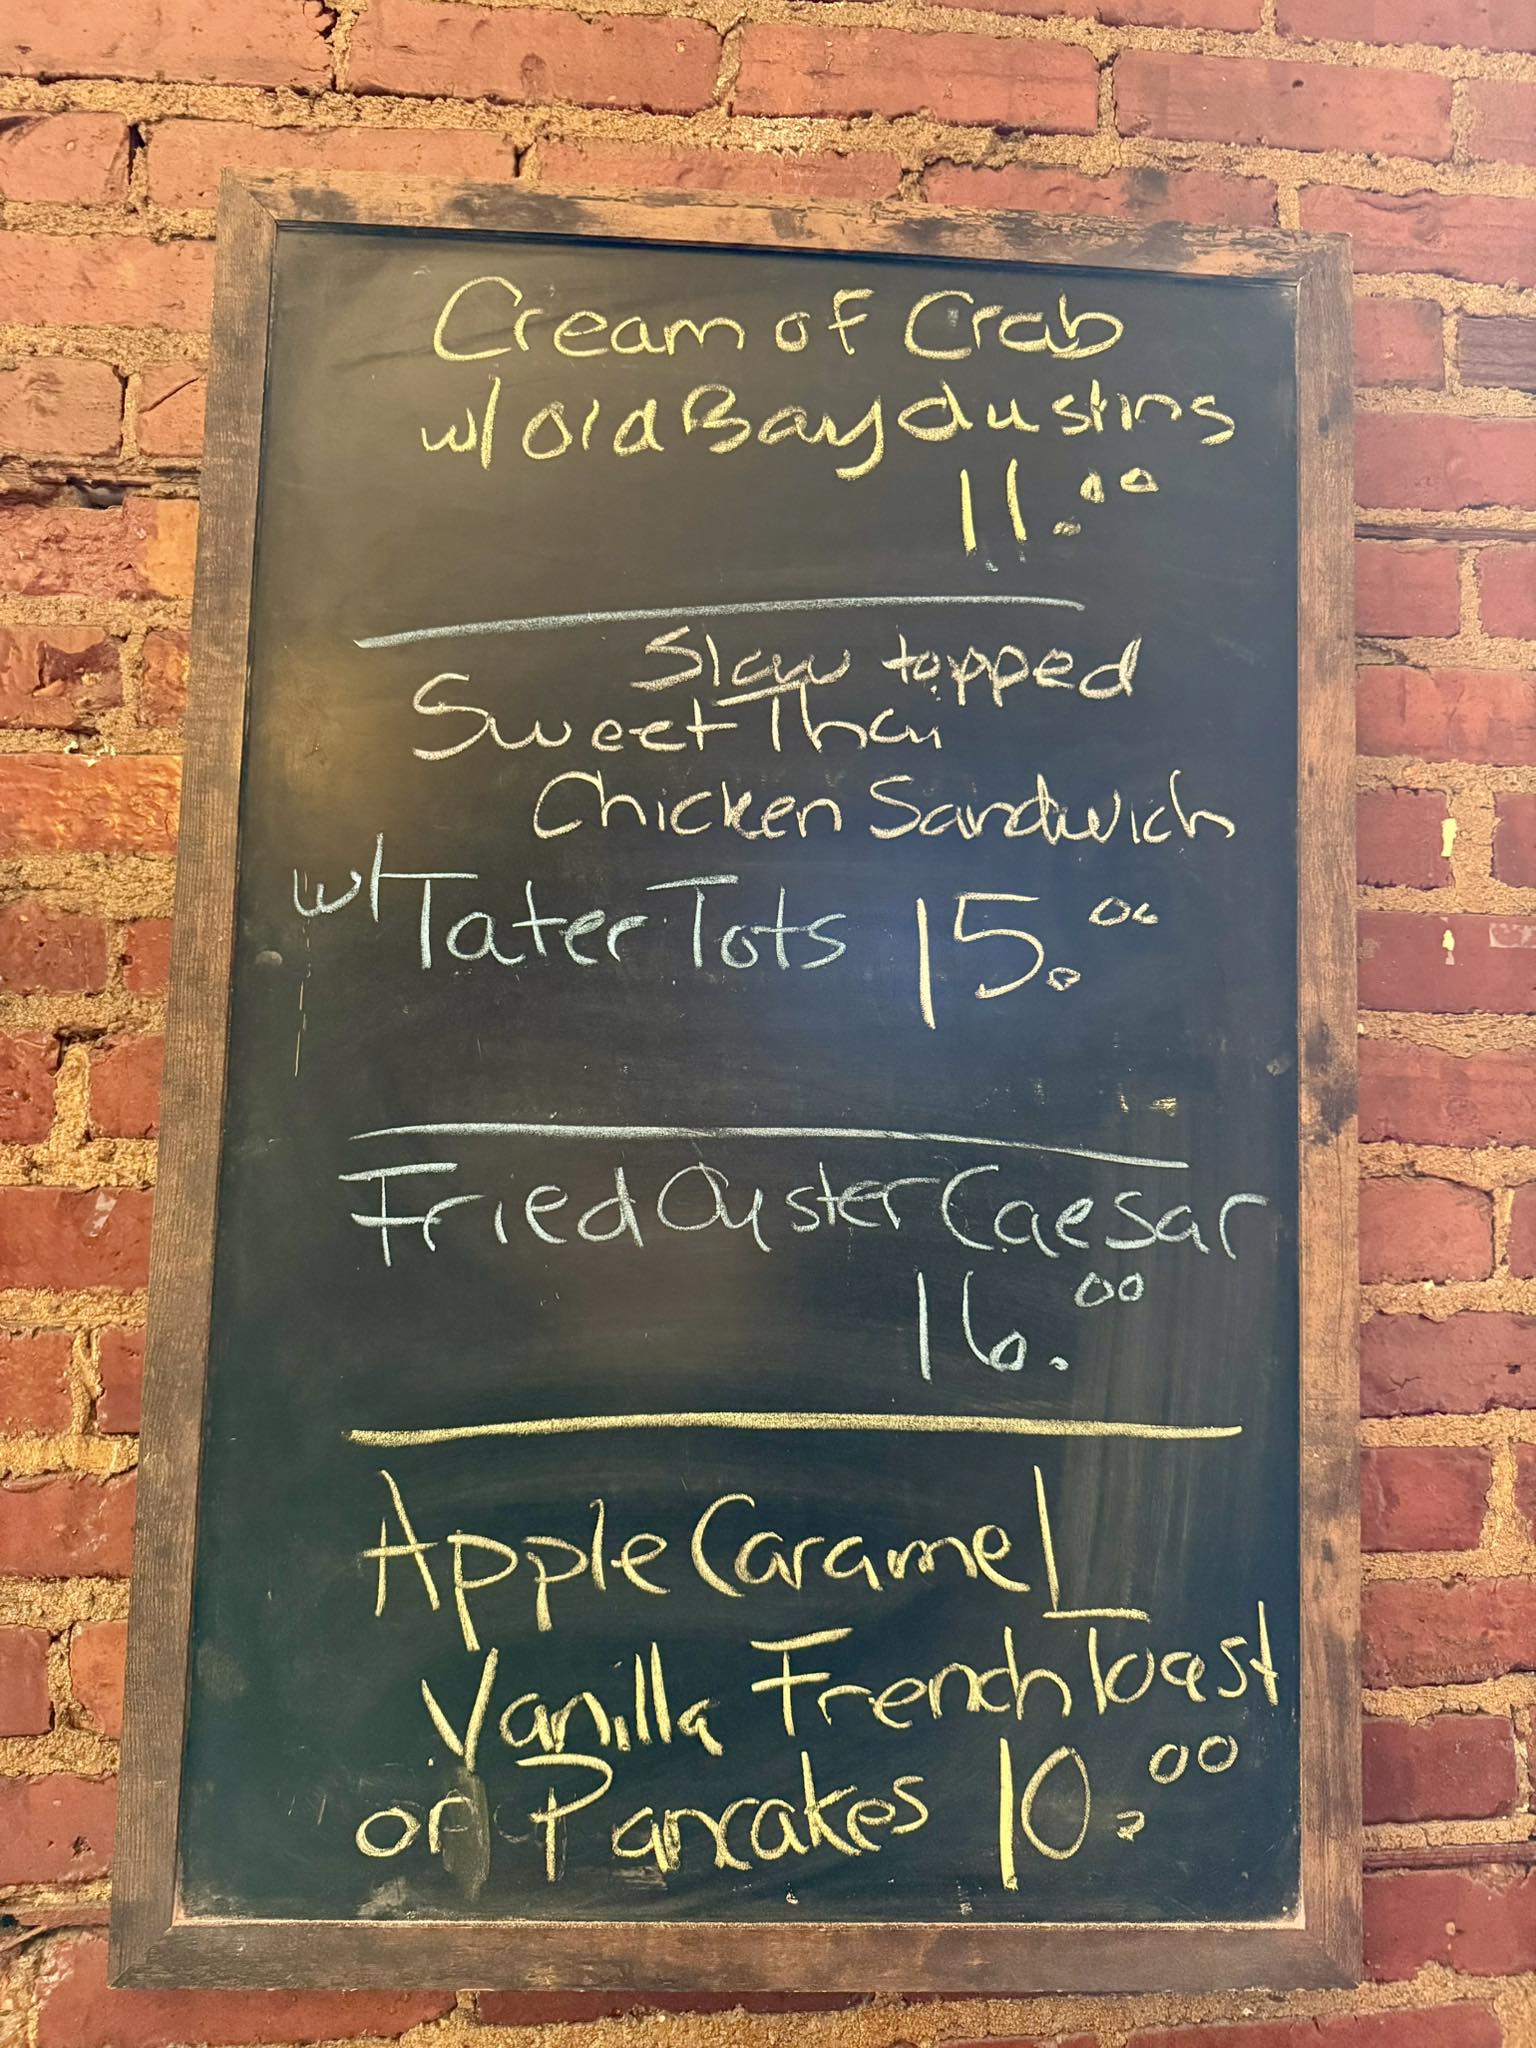 Cream of Crab
w/ Old Bay dusting
11.00
Slaw topped
Sweet Thai
Chicken Sandwich
w/ Tater Tots 15.00
Fried Oyster Caesar
16.00
Apple Caramel
Vanilla French Toast
or Pancakes 10.00